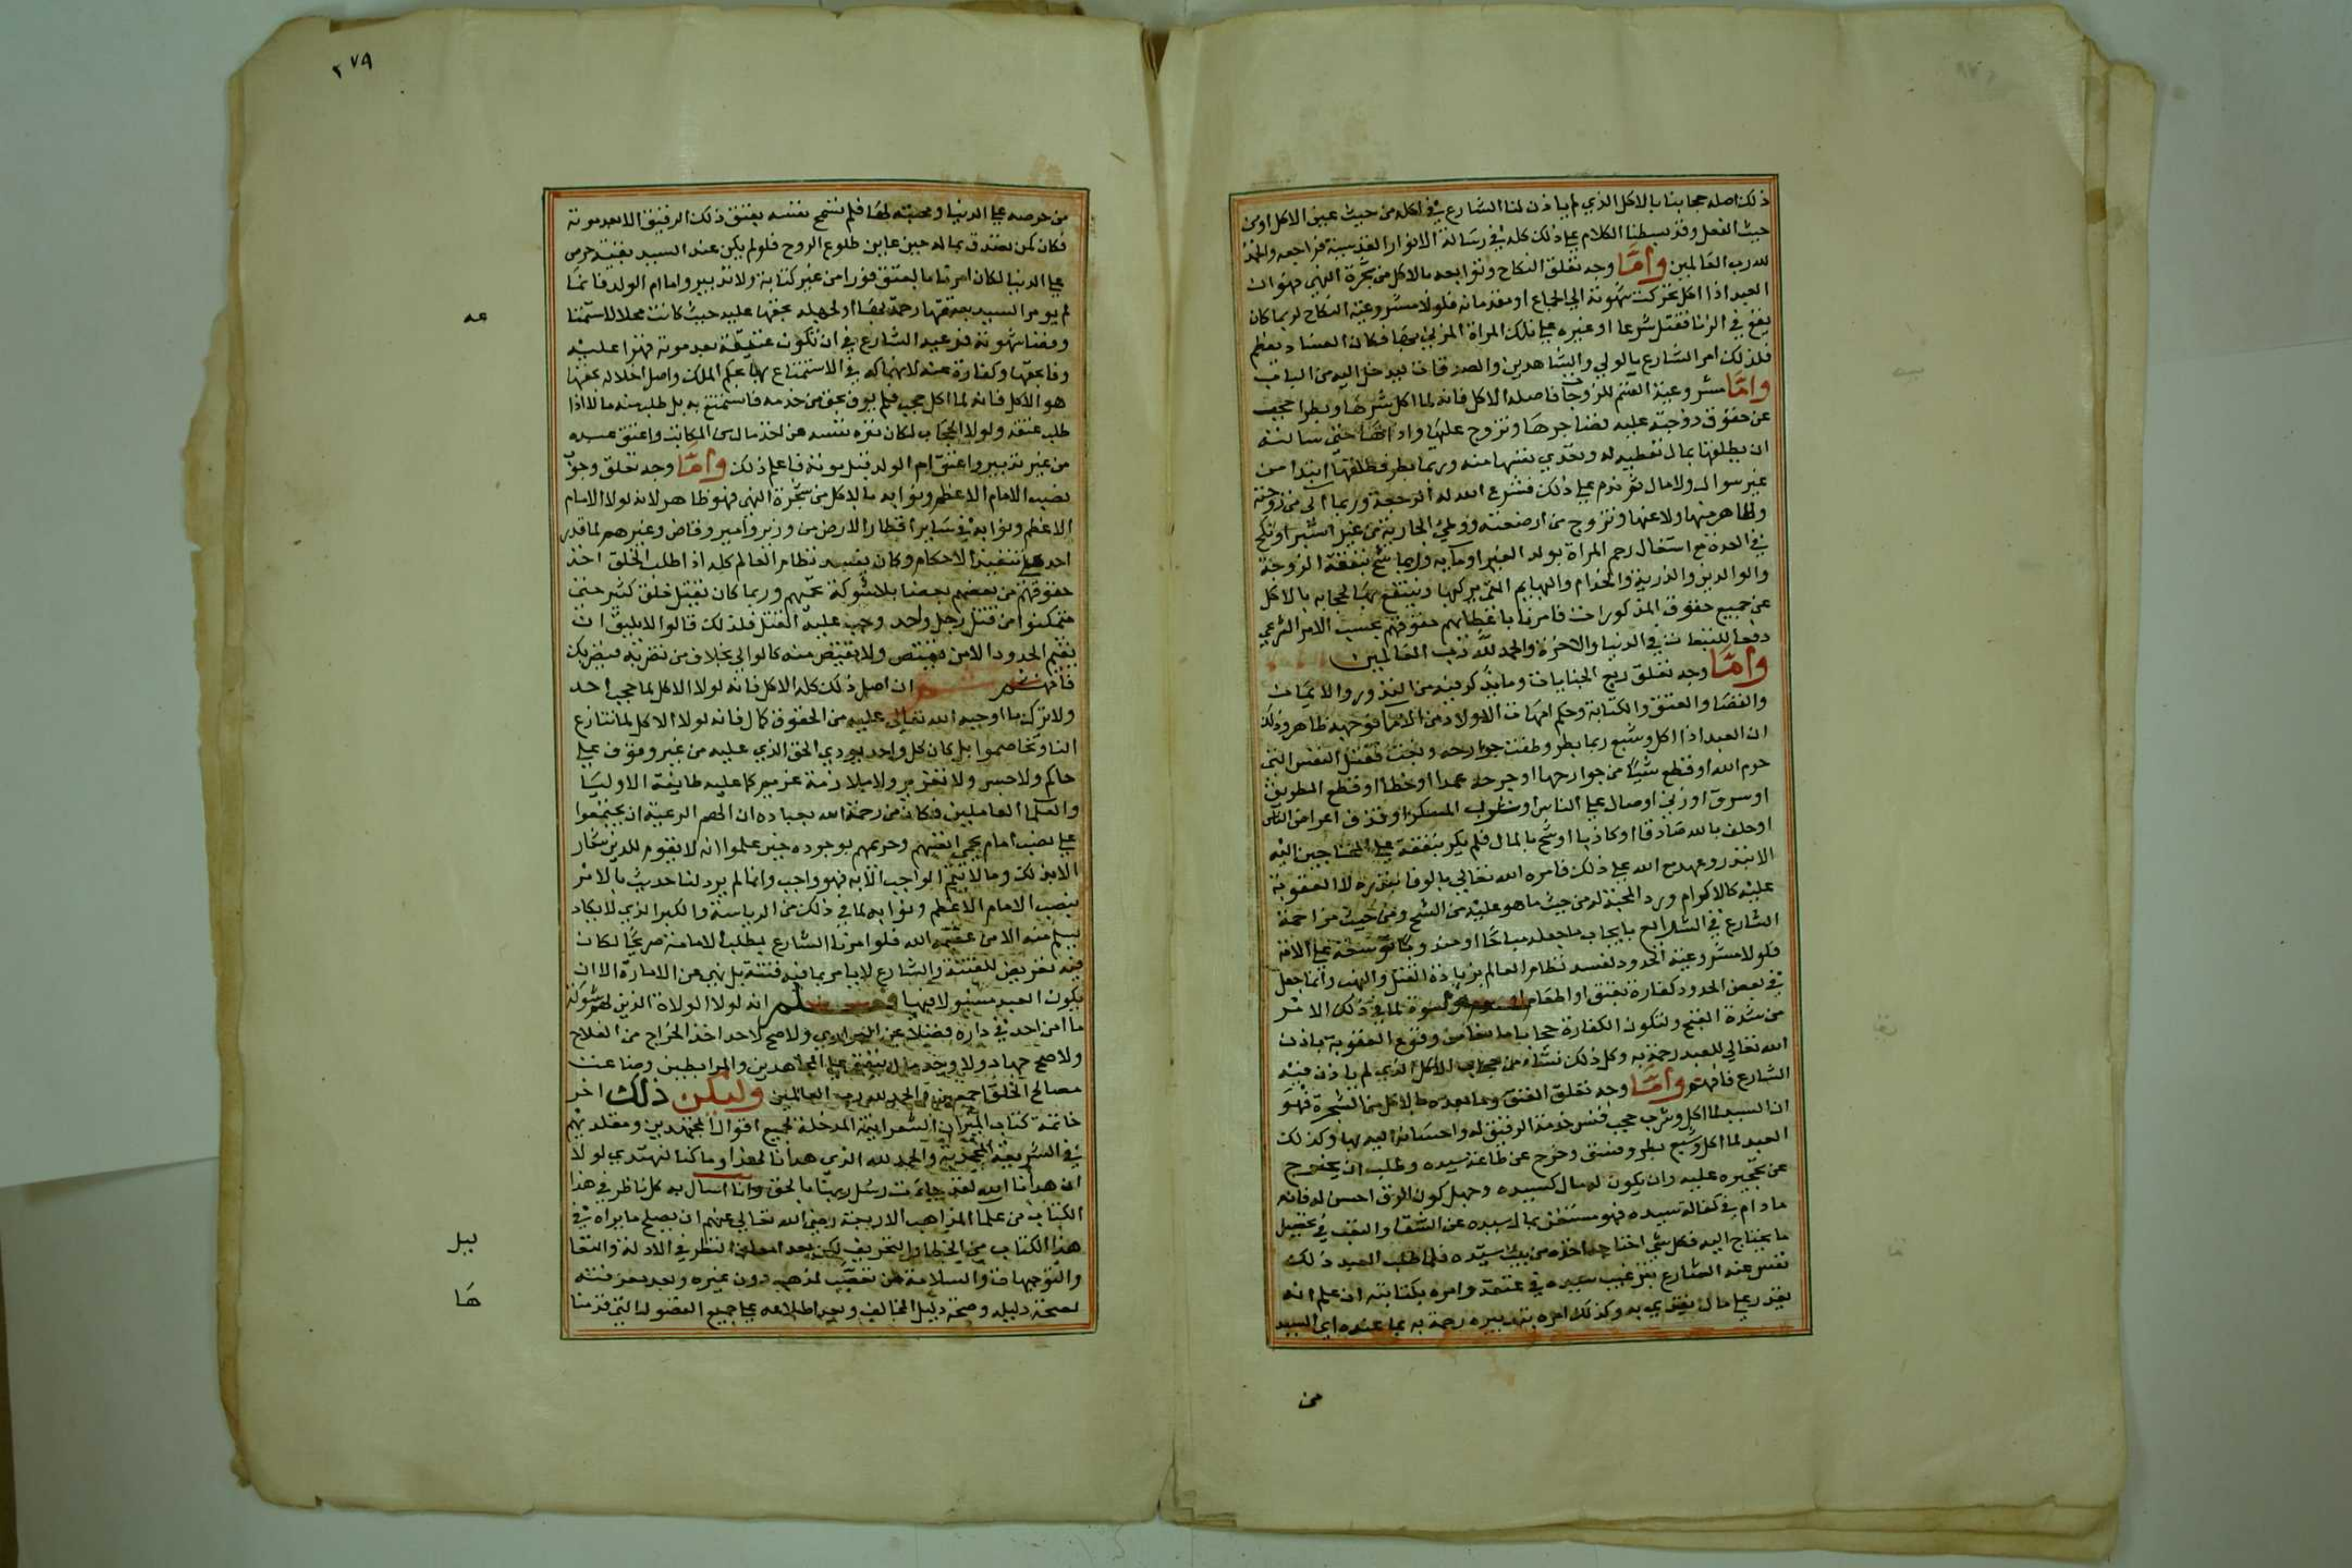 ذلك اصله حجابنا بالاكل الذي لم ياذن لنا الشارع في اكله من حيث عين الاكل او من
حيث الفعل وقد بسطنا الكلام على ذلك كله في رسالة الانوار القدسية فراجعه والحمد
لله رب العالمين وامَّا وجه تعلق النكاح وتوابعه بالاكل من شجرة النهي فهو ان
العبد اذا اكل تحركت شهوته الى الجماع او مقدماته فلولا مشروعية النكاح لربما كان
يقع في الزنا فقتل شرعا او غيره على تلك المراة المزني بها فكان الفساد يعظم
فلذلك امر الشارع بالولي والشاهدين والصداق ليدخل اليه من الباب
وامَّا مشروعية القسم للزوجات فاصله الاكل فانه لما اكل شرها وبطرا حجب
عن حقوق زوجته عليه فضاجرها وتزوج عليها واذاها حتى سالته
ان يطلقها بمال تعطيه له وتفدي نفسها منه وربما بطر فطلقها ابتدا من
غير سوال ولا مال ثم ندم على ذلك فشرع الله له الرجعة وربما الى من زوجته
وظاهر منها ولاعنها وتزوج من ارضعته ووطئ الجارية من غير استبرا ونكح
في العدة مع اشتغال رحم المراة بولد الغير او مايه وربما شح بنفقة الزوجة
والوالدين والذرية والخدام والبهايم التي يركبها وينتفع بها لحجابه بالاكل
عن جميع حقوق المذكورات فامرنا باعطايهم حقوقهم بحسب الامر الشرعي
دفعا للتبعات في الدنيا والاخرة والحمد لله رب العالمين
وامَّا وجه تعلق ربع الجنايات وما يذكر فيه من النذور والايمان
والقضا والعتق والكتابة وحكم امهات الاولاد من الاماء فوجهه ظاهر وذلك
ان العبد اذا اكل وشبع ربما بطر وطغت جوارحه وبغت فقتل النفس التي
حرم الله او قطع شيئا من جوارحها او جرحه عمدا او خطا او قطع الطريق
او سرق او زنى او صال على الناس او شرب المسكر او قذف اعراض الناس
او حلف بالله صادقا او كاذبا او شح بالمال فلم يكن ينفقه على المحتاجين اليه
الا بنذر وعهد مع الله على ذلك فامره الله تعالى بالوفا بنذره لا العقوبة
عليه كالاكرام ورد المحبة له من حيث ما هو عليه من الشح ومن حيث مزاحمة
الشارع في الشرايع بايجاب ما جعله مباحا او مندوبا توسعة على الامة
فلولا مشروعية الحدود لفسد نظام العالم بزيادة القتل والنهب وانما جعل
في بعض الحدود كفارة بعتق او اطعام او صوم او كسوة لما في ذلك الامر
من شدة القبح ولتكون الكفارة حجابا مانعا من وقوع العقوبة باذن
الله تعالى للعبد رحمة به وكل ذلك نشاة من حجاب الاكل الذي لم ياذن فيه
الشارع فافهم وامَّا وجه تعلق العتق وما بعده بالاكل من الشجرة فهو
ان السيد لما اكل وشرب حجب فنسي خدمة الرقيق له واحسانه اليه بها وكذلك
العبد لما اكل وشبع بطر وفسق وخرج عن طاعة سيده وطلب ان يخرج
عن تحجيره عليه وان يكون له مال كسيده وجهل كون الرق احسن له فانه
ما دام في كفالة سيده فهو مستغن بمال سيده عن الشقا والتعب في تحصيل
ما يحتاج اليه فكل شي احتاجه اخذه من بيت سيده فلما طلب العبد ذلك
نفس عنه الشارع بترغيب سيده في عتقه وامره بكتابته ان علم انه
يقدر على مال يفتدي به وكذلك امره بتدبيره رحمة به بما عنده اي السيد
من
٢٧٩
من حرصه على الدنيا ومحبته لها فلم تسمح نفسه بعتق ذلك الرقيق الا بعد موته
فكان كمن تصدق بماله حين عاين طلوع الروح فلو لم يكن عند السيد بقية حرص
على الدنيا لكان امرنا ما بالعتق فورا من غير كتابة ولا تدبير واما ام الولد فانما
لم يومر السيد بعتقها رحمة بها او لجهله بحقها عليه حيث كانت محلا لاستمتا
عه
وقضا شهوته فرغبه الشارع في ان تكون عتيقة بعد موته قهرا عليه
وفا بحقها وكفارة عنه لانهماكه في الاستمتاع بها بحكم الملك واصل اخلاله بحقها
هو الاكل فانه لما اكل حجب فلم يوف بحق من خدمه فاستمتع به بل طلب منه مالا اذا
طلب عتقه ولولا الحجاب لكان نزه نفسه عن اخذ مال من المكاتب واعتق عبده
من غير تدبير واعتق ام الولد قبل موته فاعلم ذلك وامَّا وجه تعلق وجوب
نصب الامام الاعظم ونوابه بالاكل من شجرة النهي فهو ظاهر لانه لولا الامام
الاعظم ونوابه في ساير اقطار الارض من وزير وامير وقاض وغيرهم لما قدر
احد على تنفيذ الاحكام وكان يفسد نظام العالم كله اذا طلب الخلق اخذ
حقوقهم من بعضهم بعضا بلا شوكة تحميهم وربما كان يقتل خلق كثير حتى
يتمكنوا من قتل رجل واحد وجب عليه القتل فلذلك قالوا لا يليق ان
يقيم الحدود الا من يقتص ولا يقتص منه كالوالي بخلاف من تضربه فيضربك
فافهم ان اصل ذلك كله الاكل فانه لولا الاكل لما حجب احد
ولا ترك ما اوجبه الله تعالى عليه من الحقوق كما فانه لولا الاكل لما تنازع
الناس وتخاصموا بل كان كل واحد يودي الحق الذي عليه من غير وقوف على
حاكم ولا حبس ولا تعزير ولا ملازمة غريم كما عليه طايفة الاوليا
والعلما العاملين فكان من رحمة الله بعباده ان الهم الرعية ان يجتمعوا
على نصب امام يحمي انفسهم وحريمهم بوجوده حين علموا انه لا يقوم للدين شعار
الا بذلك وما لا يتم الواجب الا به فهو واجب وانما لم يرد لنا حديث بالامر
بنصب الامام الاعظم ونوابه لما في ذلك من الرياسة والكبر الذي لا يكاد
يسلم منه الا من عصمه الله فلو امرنا الشارع بطلب الامامة صريحا لكان
فيه تعريض للفتنة والشارع لا يامر بما فيه فتنة بل نهى عن الامارة الا ان
يكون العبد مسئولا فيها انه لولا الولاة الذين لهم شوكة
ما امن احد في داره فضلا عن البراري ولا صح لاحد اخذ الخراج من الفلاح
ولا صح جهاد ولا وجد مال ينفق على المجاهدين والمرابطين وضاعت
مصالح الخلق اجمعين والحمد لله رب العالمين وليكن ذلك اخر
خاتمة كتاب الميزان الشعرانية المدخلة لجميع اقوال المجتهدين ومقلديهم
في الشريعة المحمدية والحمد لله الذي هدانا لهذا وما كنا لنهتدي لولا
ان هدانا الله لقد جاءت رسل ربنا بالحق وانا اسال به كل ناظر في هذا
الكتاب من علما المذاهب الاربعة رضي الله تعالى عنهم ان يصلح ما يراه في
هذا الكتاب من الخطا والتحريف لكن بعد امعان النظر في الادلة والتعا
ليل
والتوجيهات والسلامة من تعصب لمذهب دون غيره وبعد معرفته
لصحة دليله وصحة دليل المخالف وبعد اطلاعه على جميع الفصول التي قدمنا
ها